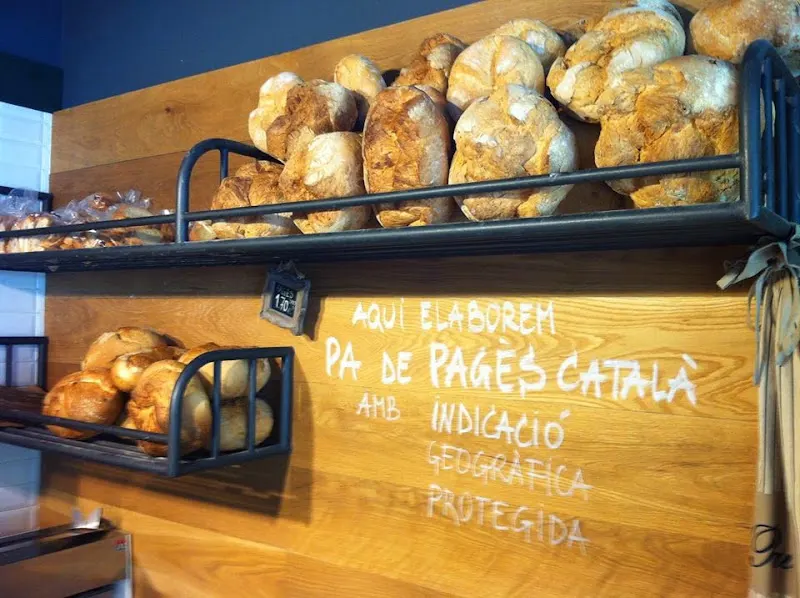 1'70
AQUÍ ELABOREM
PA DE PAGÈS CATALÀ
AMB INDICACIÓ
GEOGRÀFICA
PROTEGIDA